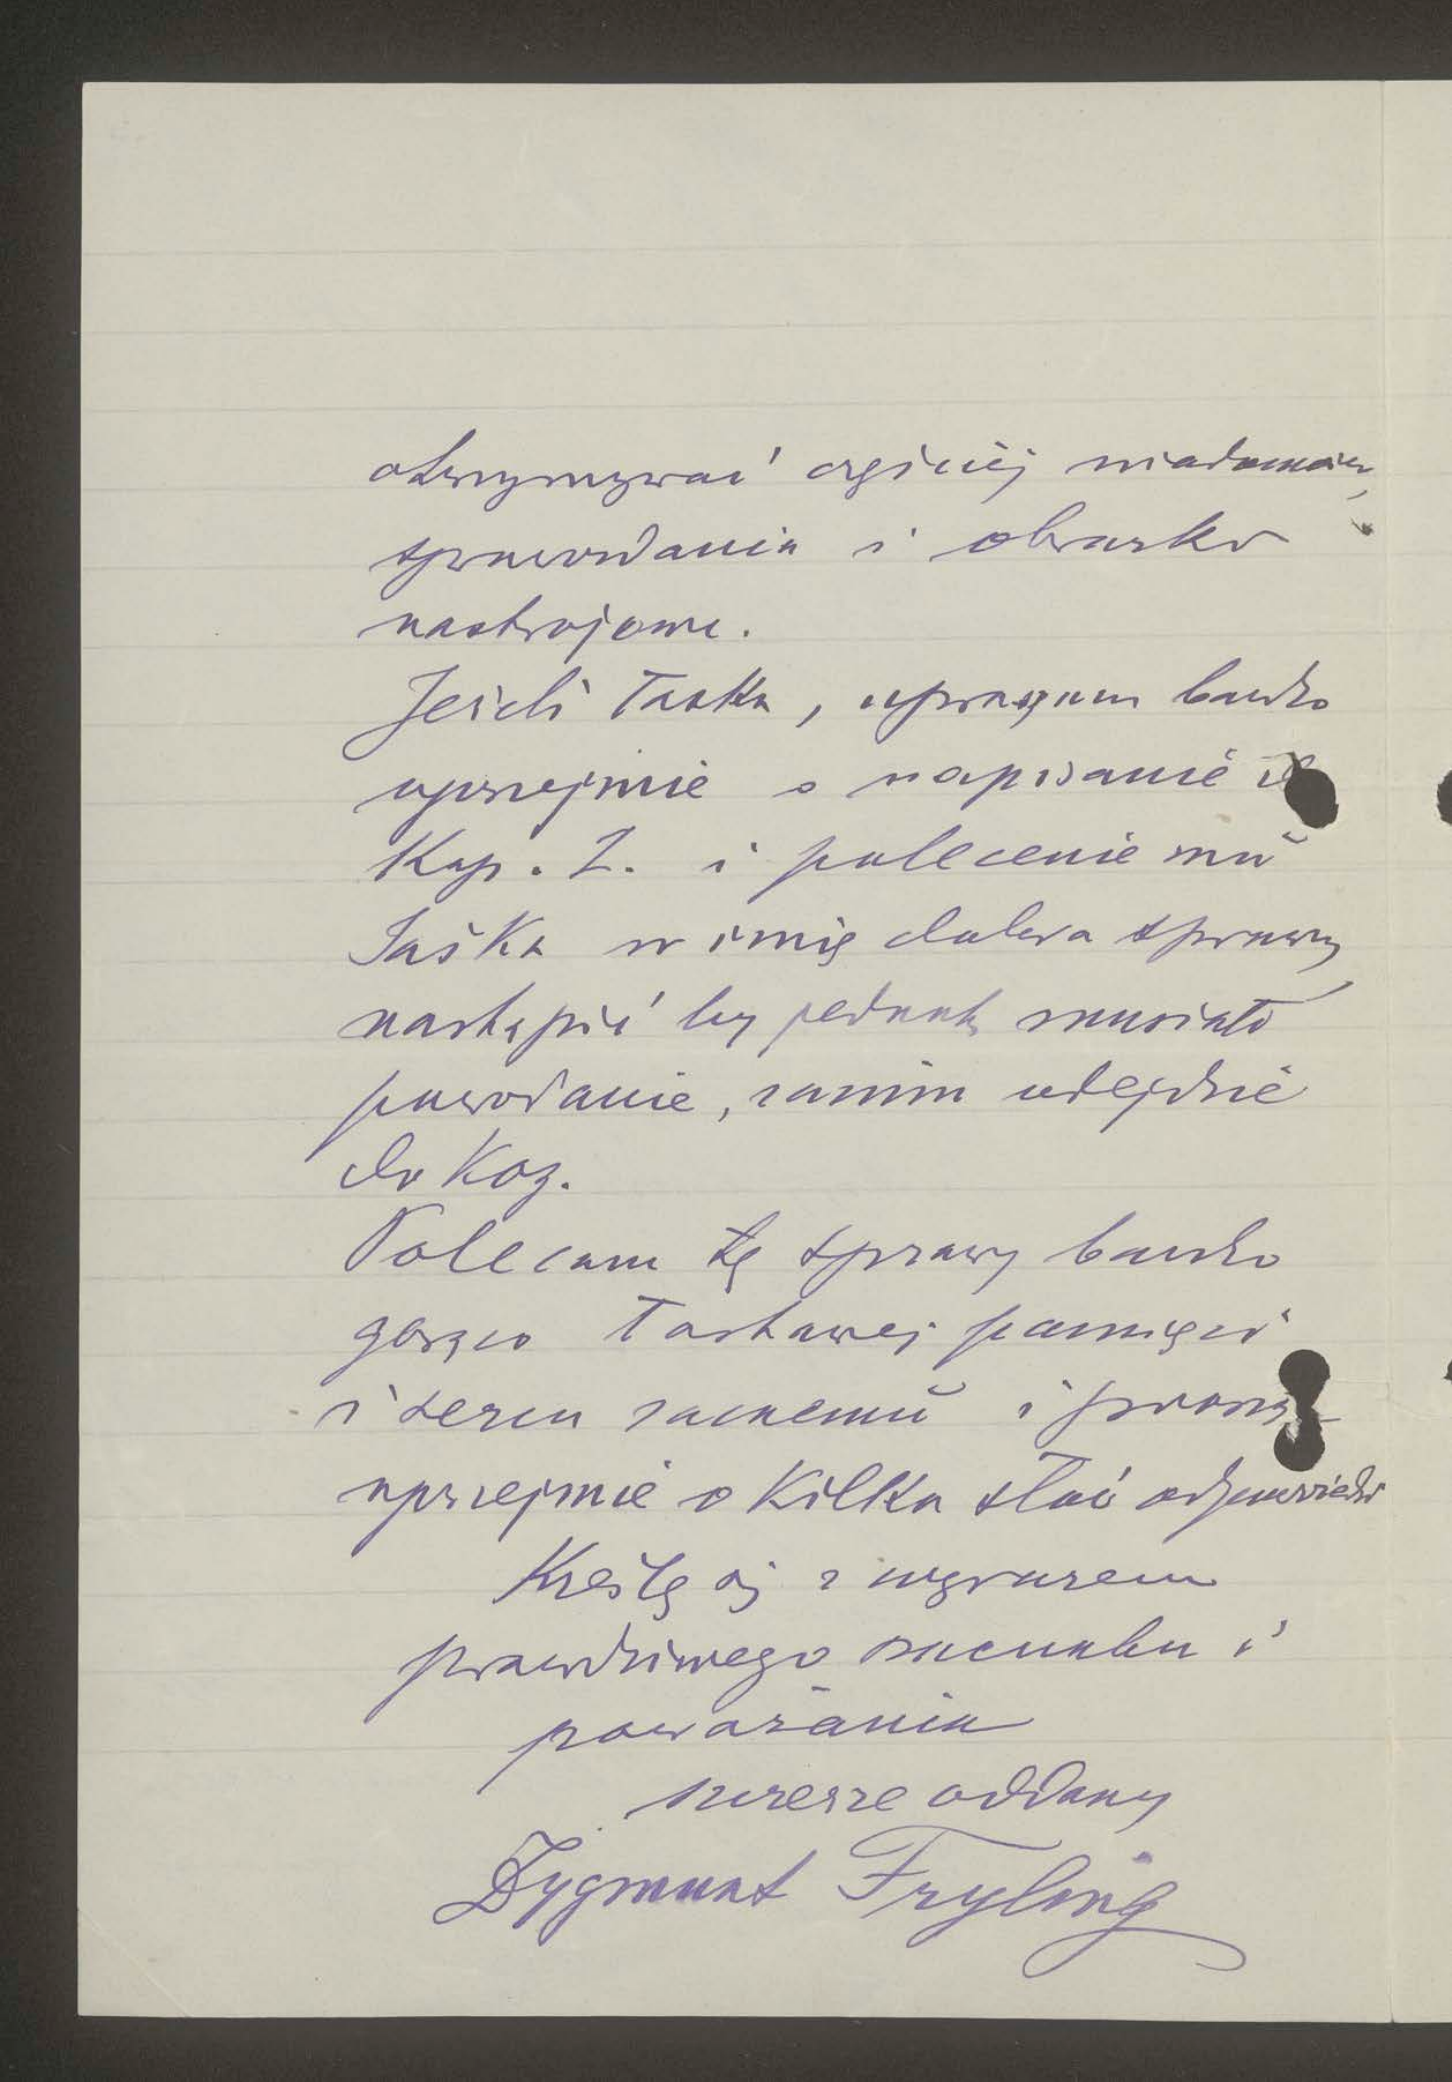 otrzymywać częściej wiadomości,
sprawozdania i obrazki
nastrojowe.
Jeżeli łaska, upraszam bardzo
uprzejmie o napisanie do
Kap. Z. i polecenie mu
Jaśka w imię dobra sprawy
nastąpić by jednak musiało
powołanie, zanim odejdzie
do Koz.
Polecam tę sprawę bardzo
gorąco łaskawej pamięci
i sercu zacnemu i proszę
uprzejmie o kilka słów odpowiedzi
Kreślę się z wyrazem
prawdziwego szacunku i
poważania
szczerze oddany
Zygmunt Fryling